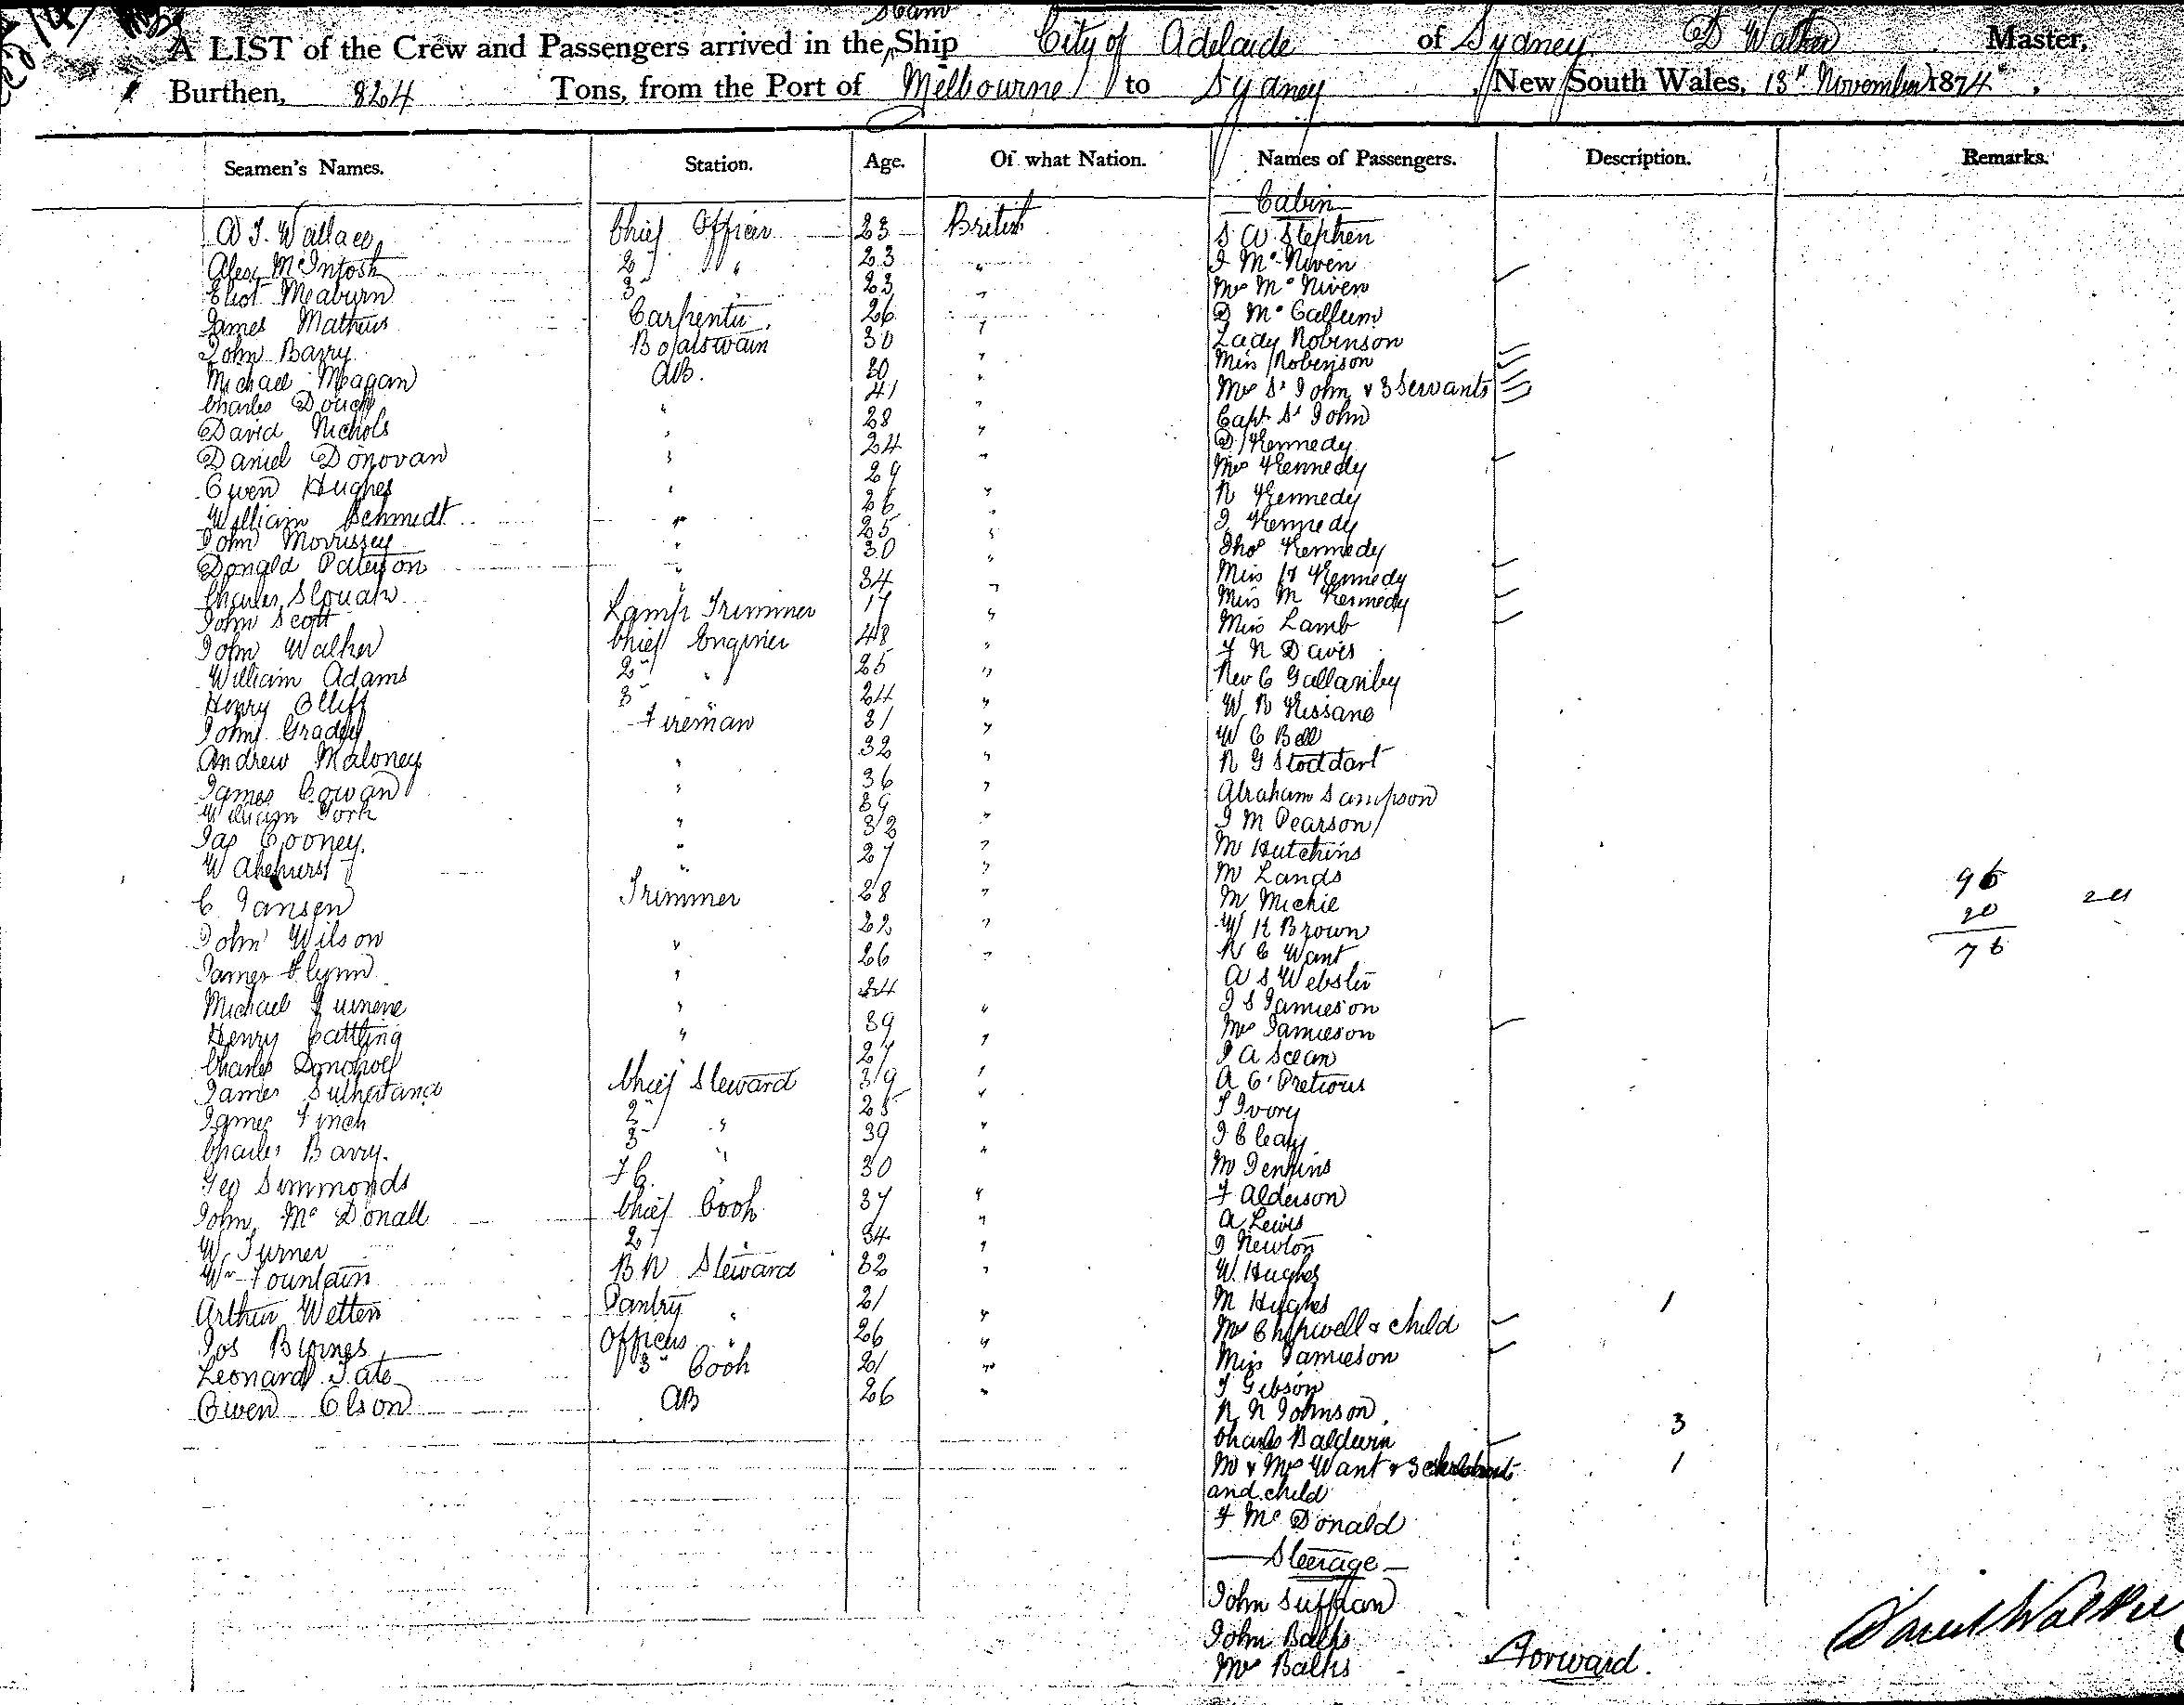 Steam
A LIST of the Crew and Passengers arrived in the Ship City of Adelaide of Sydney D Walker Master,
Burthen, 824 Tons, from the Port of Melbourne to Sydney, New South Wales, 13th November 1874.
Seamen's Names. Station. Age. Of what Nation. Names of Passengers. Description. Remarks.
Cabin
A J. Wallace Chief Officer 23 British
Alexr McIntosh 2 " 23 "
Eliot Meaburn 3 " 23 "
James Mathews Carpenter 26 "
John Barry Boatswain 30 "
Michael Meagan AB. 20 "
Charles Douch " 41 "
David Nichols " 28 "
Daniel Donovan " 24 "
Owen Hughes " 29 "
William Schmidt " 26 "
John Morrissey " 25 "
Donald Paterson " 30 "
Charles " 34 "
John Scott Lamp Trimmer 17 "
John Walker Chief Engineer 48 "
William Adams 2 " 25 "
Henry Olliff 3 " 24 "
John Grady Fireman 31 "
Andrew Maloney " 32 "
James Cowan " 36 "
William York " 39 "
Jas Cooney. " 32 "
W Akehurst " 27 "
C Jansen Trimmer 28 "
John Wilson " 22 "
James Flynn " 26 "
Michael " 34
Henry Cattling " 39 "
Charles Donohoe 27 "
James Sutherland Chief Steward 39 "
James Finch 2 " 25 "
Charles Barry. 3 " 39 "
Geo Simmonds F.C. " 30 "
John McDonall Chief Cook 37 "
W Turner 2 " 34 "
Wm Fountain B R Steward 32 "
Arthur Wetten Pantry " 21 "
Jos Byrnes Officers " 26 "
Leonard Tate 3 Cook 21 "
Owen Olson AB 26 "
S W Stephen
J McNiven
Mrs McNiven
D McCallum
Lady Robinson
Miss Robinson
Mrs St John & 3 Servants
Capt St John
D Kennedy
Mrs Kennedy
R Kennedy
J Kennedy
Thos Kennedy
Miss H Kennedy
Miss M Kennedy
Miss Lamb
F N Davis
Rev C
W R Kissane
W C Bell
R G Stoddart
Abraham Sampson
J M Pearson
M Hutchins
M Lands
M Michie
W H Brown
R C Want
A S Webster
J S Jamieson
Mrs Jamieson
J A
A C
T Ivory
J Cleary
M Jenkins
F Alderson
A Lewis
J Newton
W. Hughes
M Hughes 1
Mrs Chipwell & child
Miss Jamieson
T Gibson
R N Johnson 3
Charles Baldwin
Mr & Mrs Want & 3 1
and child
F McDonald
Steerage
John
John Balks
Mrs Balks
96 24
20
76
Forward.
Daniel Walker